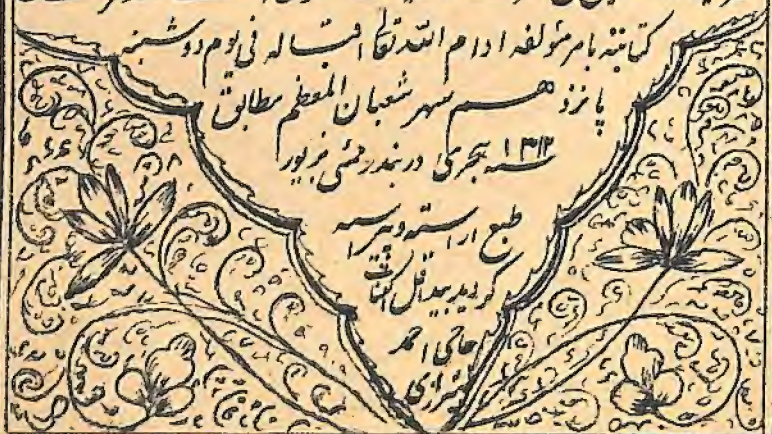 کتابته بامر مؤلفه ادام الله تعالی اقباله فی یوم دوشنبه
پانزدهم شهر شعبان المعظم مطابق
سنه ۱۳۱۲ هجری در بندر بمبئی بزیور
طبع اراسته و پیراسته
گردید بید اقل الکتاب
حاجی احمد
شیرازی